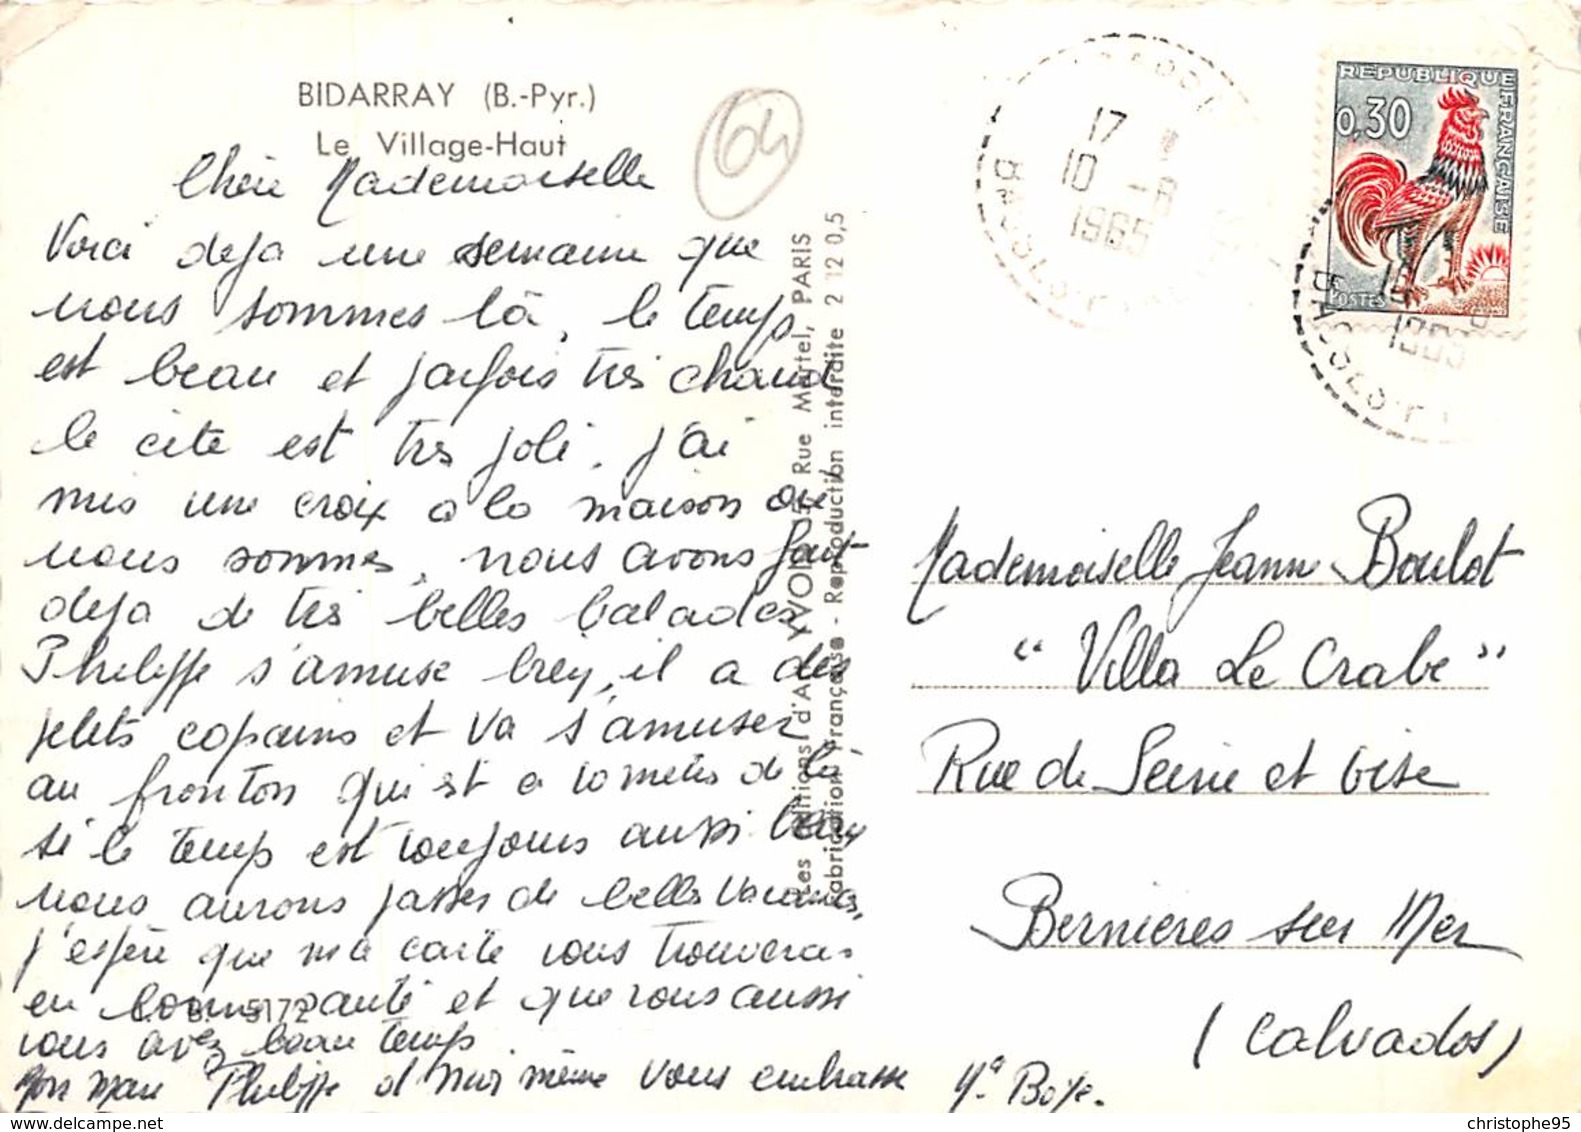 BIDARRAY (B.-Pyr.)
Le Village-Haut
64
Chère Mademoiselle
Voici deja une semaine que
nous sommes là, le temps
est beau et parfois très chaud
le cite est très joli, j'ai
mis une croix a la maison ou
nous sommes, nous avons fait
deja de très belles balades
Philippe s'amuse bien, il a des
petits copains et va s'amuser
au fronton qui est a 10 mètres de là
si le temps est toujours aussi beau
nous aurons passés de belles vacances,
j'espère que ma carte vous trouvera
en bonne santé et que vous aussi
vous avez beau temps
Mon mari Philippe et moi même vous embrasse
Les Editions d'Art YVON, 15, Rue Martel, PARIS
Fabrication Française - Reproduction interdite 2 12 0,5
5172
17
10 -8
1965
REPUBLIQUE FRANÇAISE
0,30
POSTES
1965
Mademoiselle Jeanne Boulot
" Villa Le Crabe "
Rue de Seine et Oise
Bernieres sur Mer
(Calvados)
christophe95